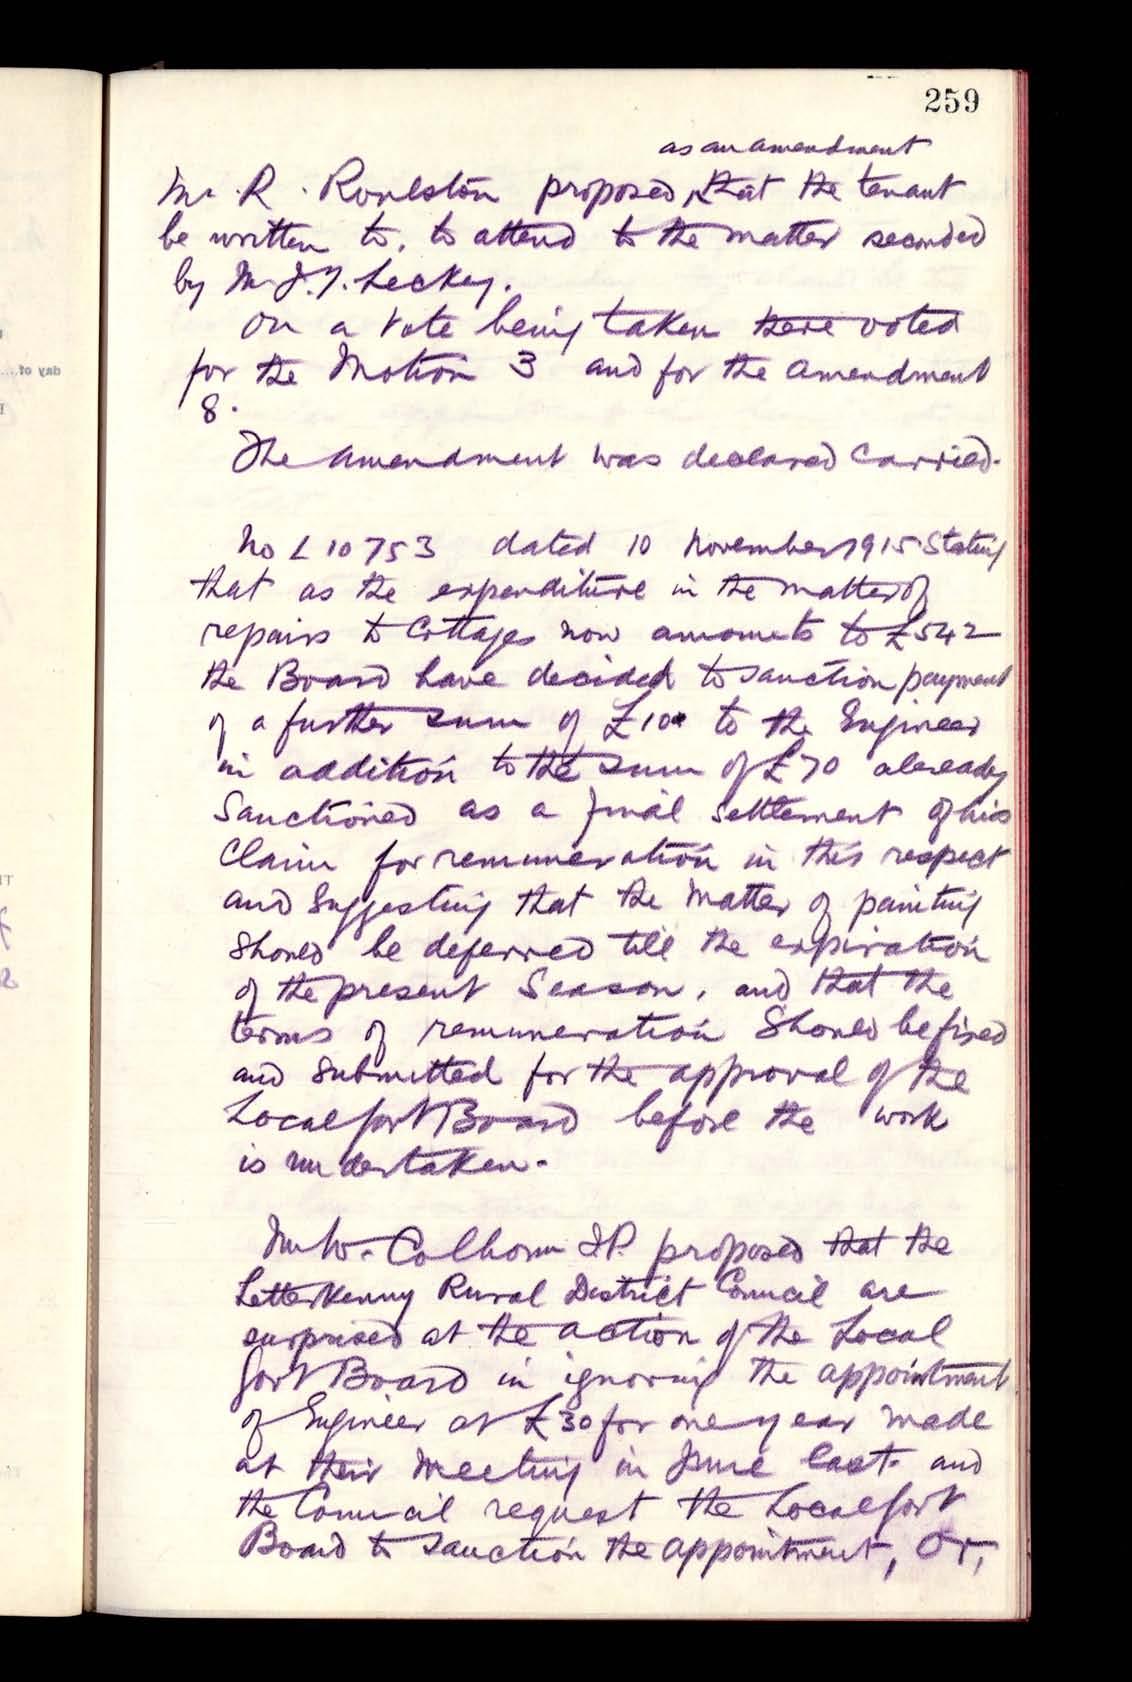 259
as an amendment
Mr. R. Roulston proposed, that the tenant
be written to, to attend to the matter seconded
by Mr J.T. Leckey.
On a vote being taken there voted
for the Motion 3 and for the amendment
8.
The amendment was declared carried.
No L 10753 dated 10 November 1915 Stating
that as the expenditure in the matter of
repairs to Cottages now amounts to £542
the Board have decided to sanction payment
of a further sum of £10 to the Engineer
in addition to the sum of £70 already
Sanctioned as a final settlement of his
Claim for remuneration in this respect
and Suggesting that the Matter of painting
Should be deferred till the expiration
of the present Season, and that the
terms of remuneration Should be fixed
and Submitted for the approval of the
Local Govt Board before the work
is undertaken.
Mr W. Colhoun J.P. proposed that the
Letterkenny Rural District Council are
surprised at the action of the Local
Govt Board in ignoring the appointment
of Engineer at £30 for one year made
at their Meeting in June last. and
the Council request the Local Govt
Board to Sanction the appointment, Or,
day of